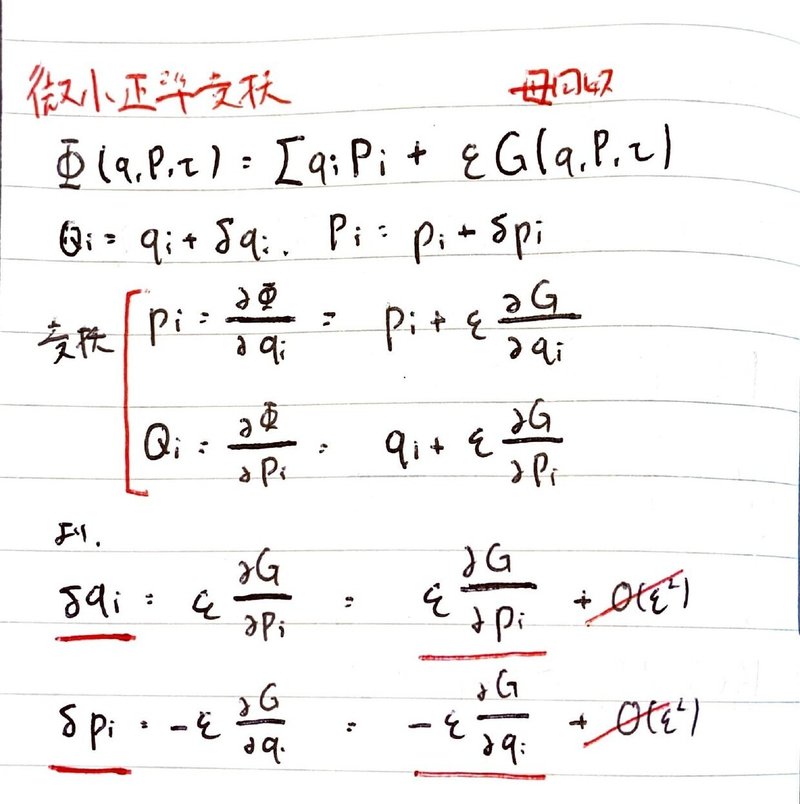 微小正準変換 母関数
Φ(q,P,t) = Σ qi Pi + εG(q,P,t)
Qi = qi + δqi. Pi = pi + δpi
変換
pi = ∂Φ/∂qi = Pi + ε ∂G/∂qi
Qi = ∂Φ/∂Pi = qi + ε ∂G/∂Pi
より.
δqi = ε ∂G/∂Pi = ε ∂G/∂pi + O(ε²)
δpi = -ε ∂G/∂qi = -ε ∂G/∂qi + O(ε²)